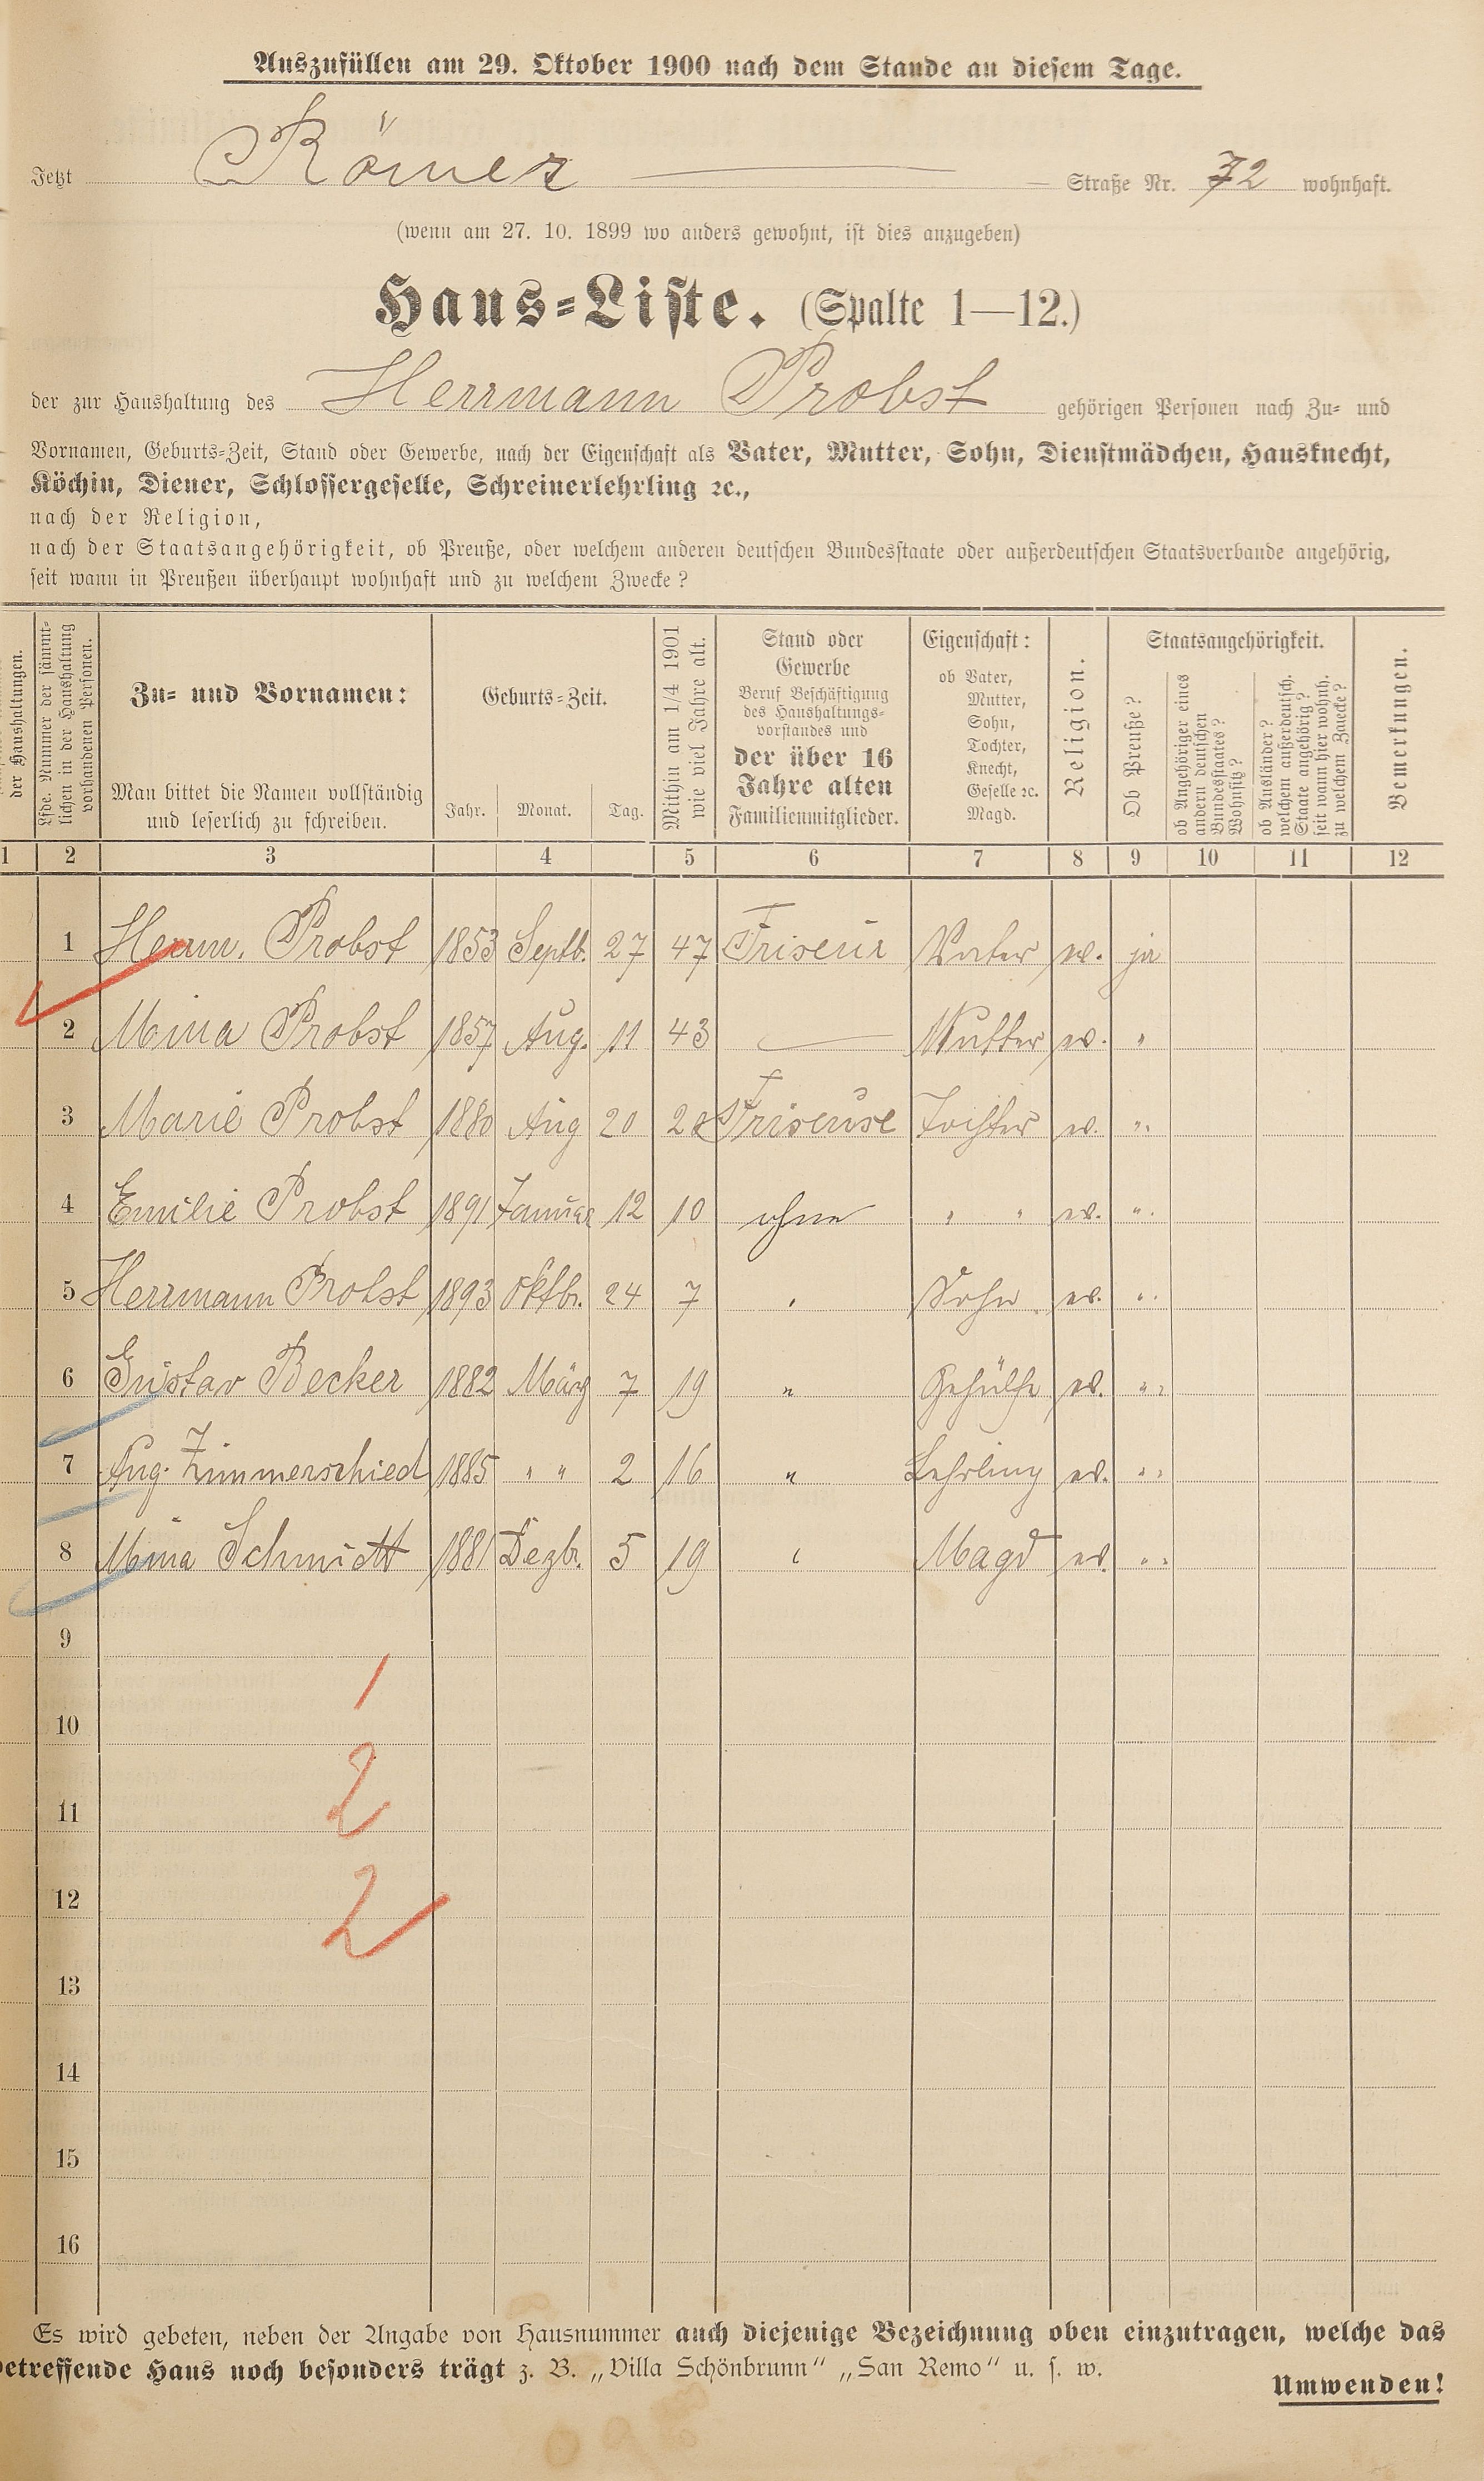 Auszufüllen am 29. Oktober 1900 nach dem Stande an diesem Tage.
Jetzt Römer Straße Nr. 72 wohnhaft.
(wenn am 27. 10. 1899 wo anders gewohnt, ist dies anzugeben)
Haus-Liste. (Spalte 1—12.)
der zur Haushaltung des Herrmann Probst gehörigen Personen nach Zu- und
Vornamen, Geburts-Zeit, Stand oder Gewerbe, nach der Eigenschaft als Vater, Mutter, Sohn, Dienstmädchen, Hausknecht,
Köchin, Diener, Schlossergeselle, Schreinerlehrling ꝛc.,
nach der Religion,
nach der Staatsangehörigkeit, ob Preuße, oder welchem anderen deutschen Bundesstaate oder außerdeutschen Staatsverbande angehörig,
seit wann in Preußen überhaupt wohnhaft und zu welchem Zwecke?
der Haushaltungen.
Lfde. Nummer der sämmt-
lichen in der Haushaltung
vorhandenen Personen.
Zu- und Vornamen:
Man bittet die Namen vollständig
und leserlich zu schreiben.
Geburts-Zeit.
Jahr. Monat. Tag.
Mithin am 1/4 1901
wie viel Jahre alt.
Stand oder
Gewerbe
Beruf Beschäftigung
des Haushaltungs-
vorstandes und
der über 16
Jahre alten
Familienmitglieder.
Eigenschaft:
ob Vater,
Mutter,
Sohn,
Tochter,
Knecht,
Geselle ꝛc.
Magd.
Religion.
Staatsangehörigkeit.
Ob Preuße?
ob Angehöriger eines
andern deutschen
Bundesstaates?
Wohnsitz?
ob Ausländer?
welchem außerdeutsch.
Staate angehörig?
seit wann hier wohnh.
zu welchem Zwecke?
Bemerkungen.
1 2 3 4 5 6 7 8 9 10 11 12
1 Herm. Probst 1853 Septb. 27 47 Friseur Vater ev. ja
2 Mina Probst 1857 Aug. 11 43 — Mutter ev. "
3 Marie Probst 1880 Aug 20 20 Friseuse Tochter ev. "
4 Emilie Probst 1891 Januar 12 10 ohne " " ev. "
5 Herrmann Probst 1893 Oktbr. 24 7 " Sohn ev. "
6 Gustav Becker 1882 März 7 19 " Gehülfe ev. "
7 Aug. Zimmerschied 1885 " " 2 16 " Lehrling ev. "
8 Mina Schmidt 1881 Dezbr. 5 19 " Magd ev. "
9
1
10
2
11
12
2
13
14
15
16
Es wird gebeten, neben der Angabe von Hausnummer auch diejenige Bezeichnung oben einzutragen, welche das
betreffende Haus noch besonders trägt z. B. „Villa Schönbrunn" „San Remo" u. s. w.
Umwenden!